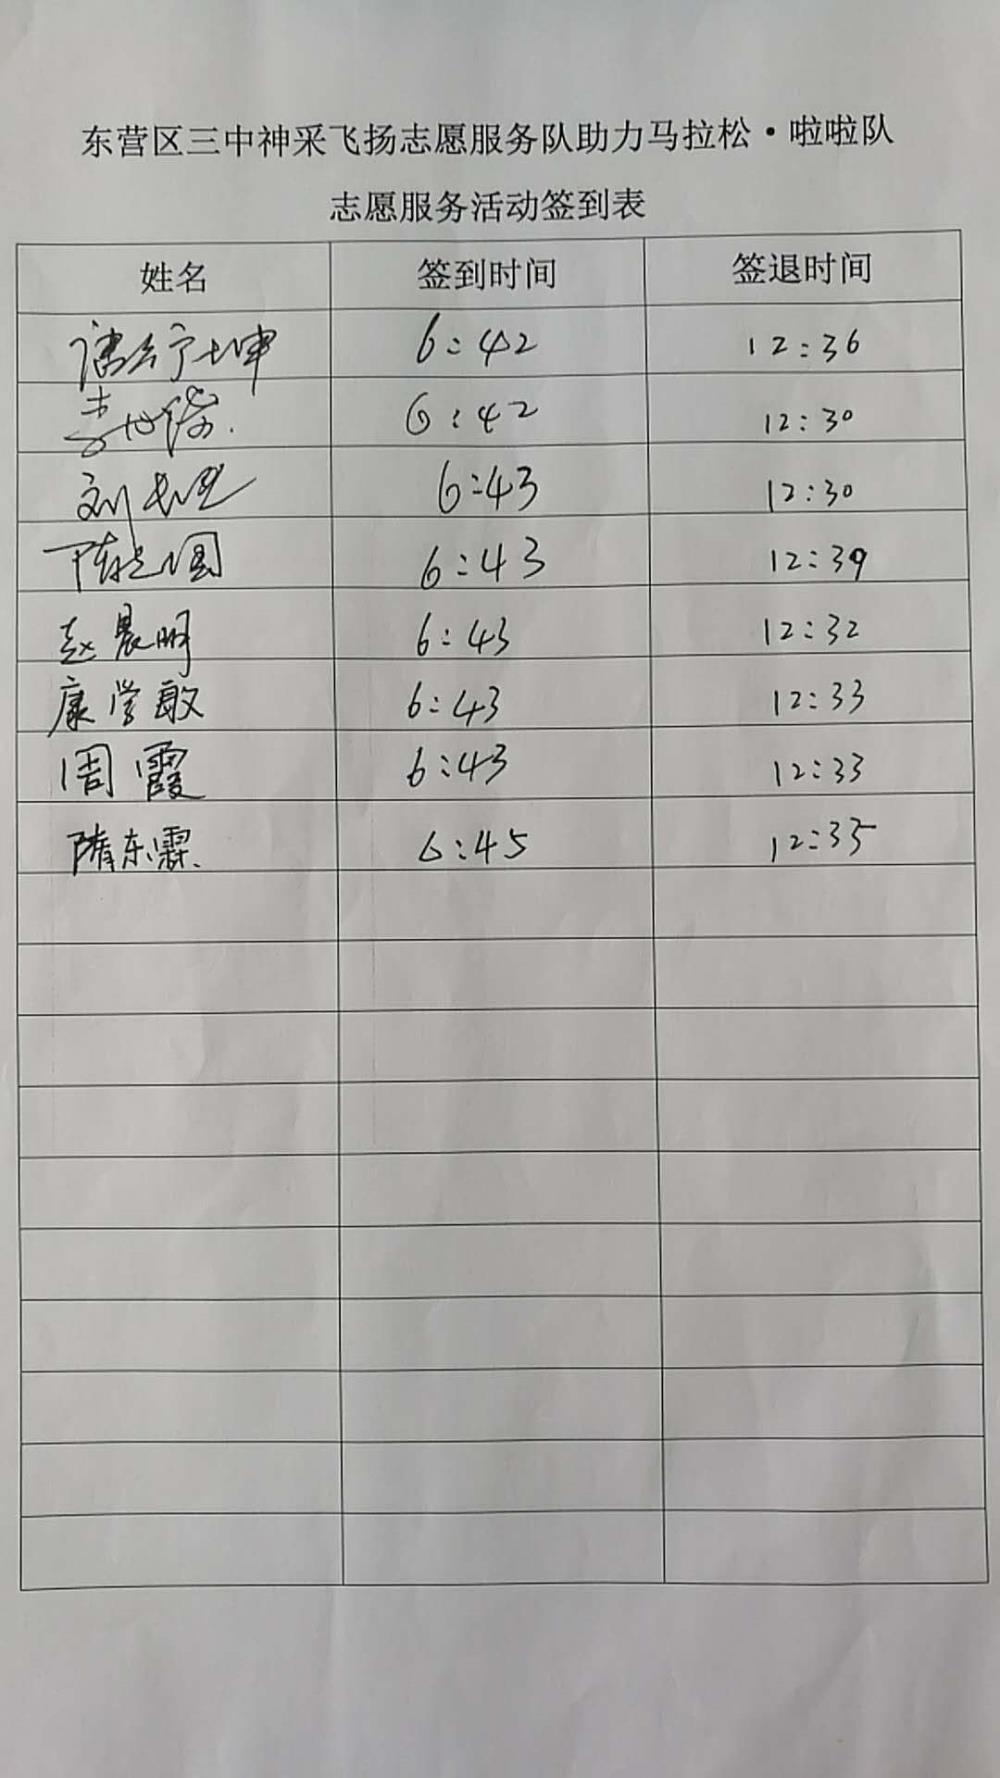 东营区三中神采飞扬志愿服务队助力马拉松·啦啦队
志愿服务活动签到表
姓名 签到时间 签退时间
6:42 12:36
李 6:42 12:30
刘 6:43 12:30
陈 6:43 12:39
赵晨明 6:43 12:32
康学敏 6:43 12:33
周霞 6:43 12:33
隋东霖 6:45 12:35